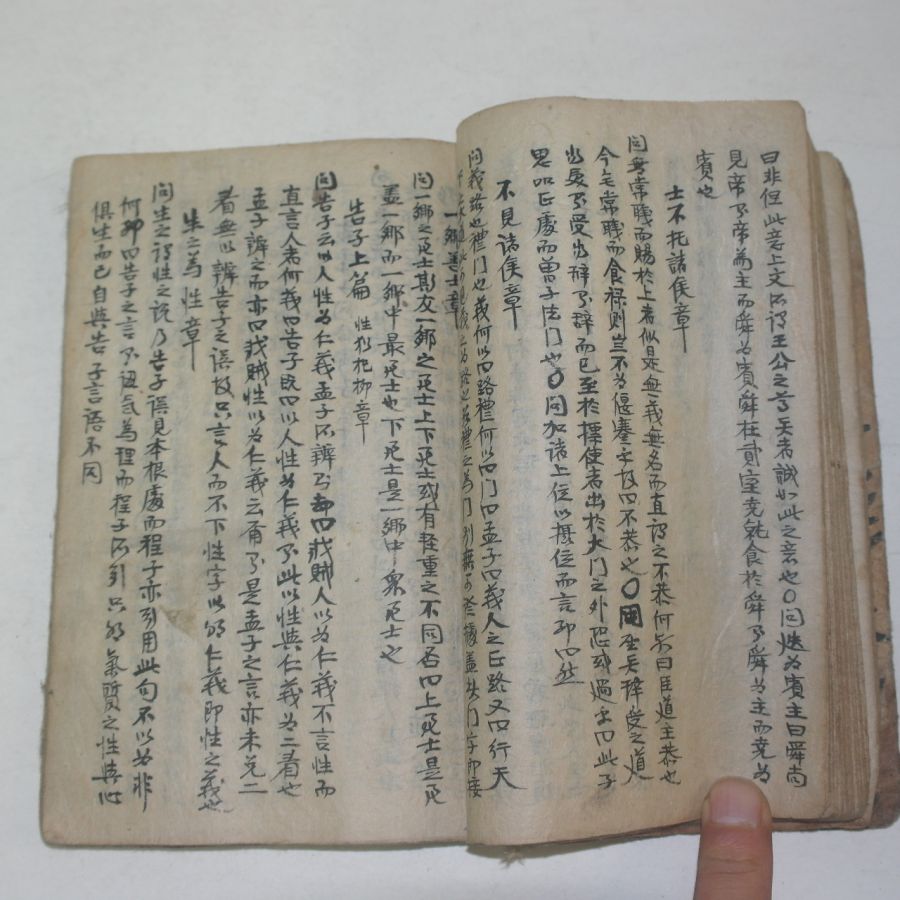 曰非但此章上文所謂王公之尊賢者誠如此之意也○問迭為賓主曰舜尚
見帝帝為主而舜為賓舜在貳室堯就食於舜舜為主而堯為
賓也
士不托諸侯章
問無常職而賜於上者似是無義無名而直謂之不恭何
今無常職而食祿則豈不為偃蹇乎故曰不恭也○問孟子辭受之道
當受不受當辭不辭而已至於摽使者出於大門之外恐或過乎曰此子
思正處而曾子法門也○問加諸上位以抵位而言耶曰然
不見諸侯章
問義路也禮門也義何以曰路禮何以曰門曰孟子曰義人之正路又曰行天
一鄉善士章
問一鄉之善士斯友一鄉之善士上下善士或有輕重之不同否曰上善士是
蓋一鄉而一鄉中最善士也下善士是一鄉中衆善士也
告子上篇 性猶杞柳章
問告子云以人性為仁義孟子不辨而却曰戕賊人以為仁義不言性而
直言人者何義曰告子既曰以人性為仁義了此以性與仁義為二看也
孟子辨之而亦曰戕賊性以為仁義云爾則是孟子之言亦未免二
看無以辨告子之語故只言人而不下性字以明仁義即性之義也
生之為性章
問生之謂性之說乃告子語見本根處而程子亦引用此句不以為非
何耶曰告子之言不過認氣為理而程子所引只明氣質之性與心
俱生而已自與告子言語不同